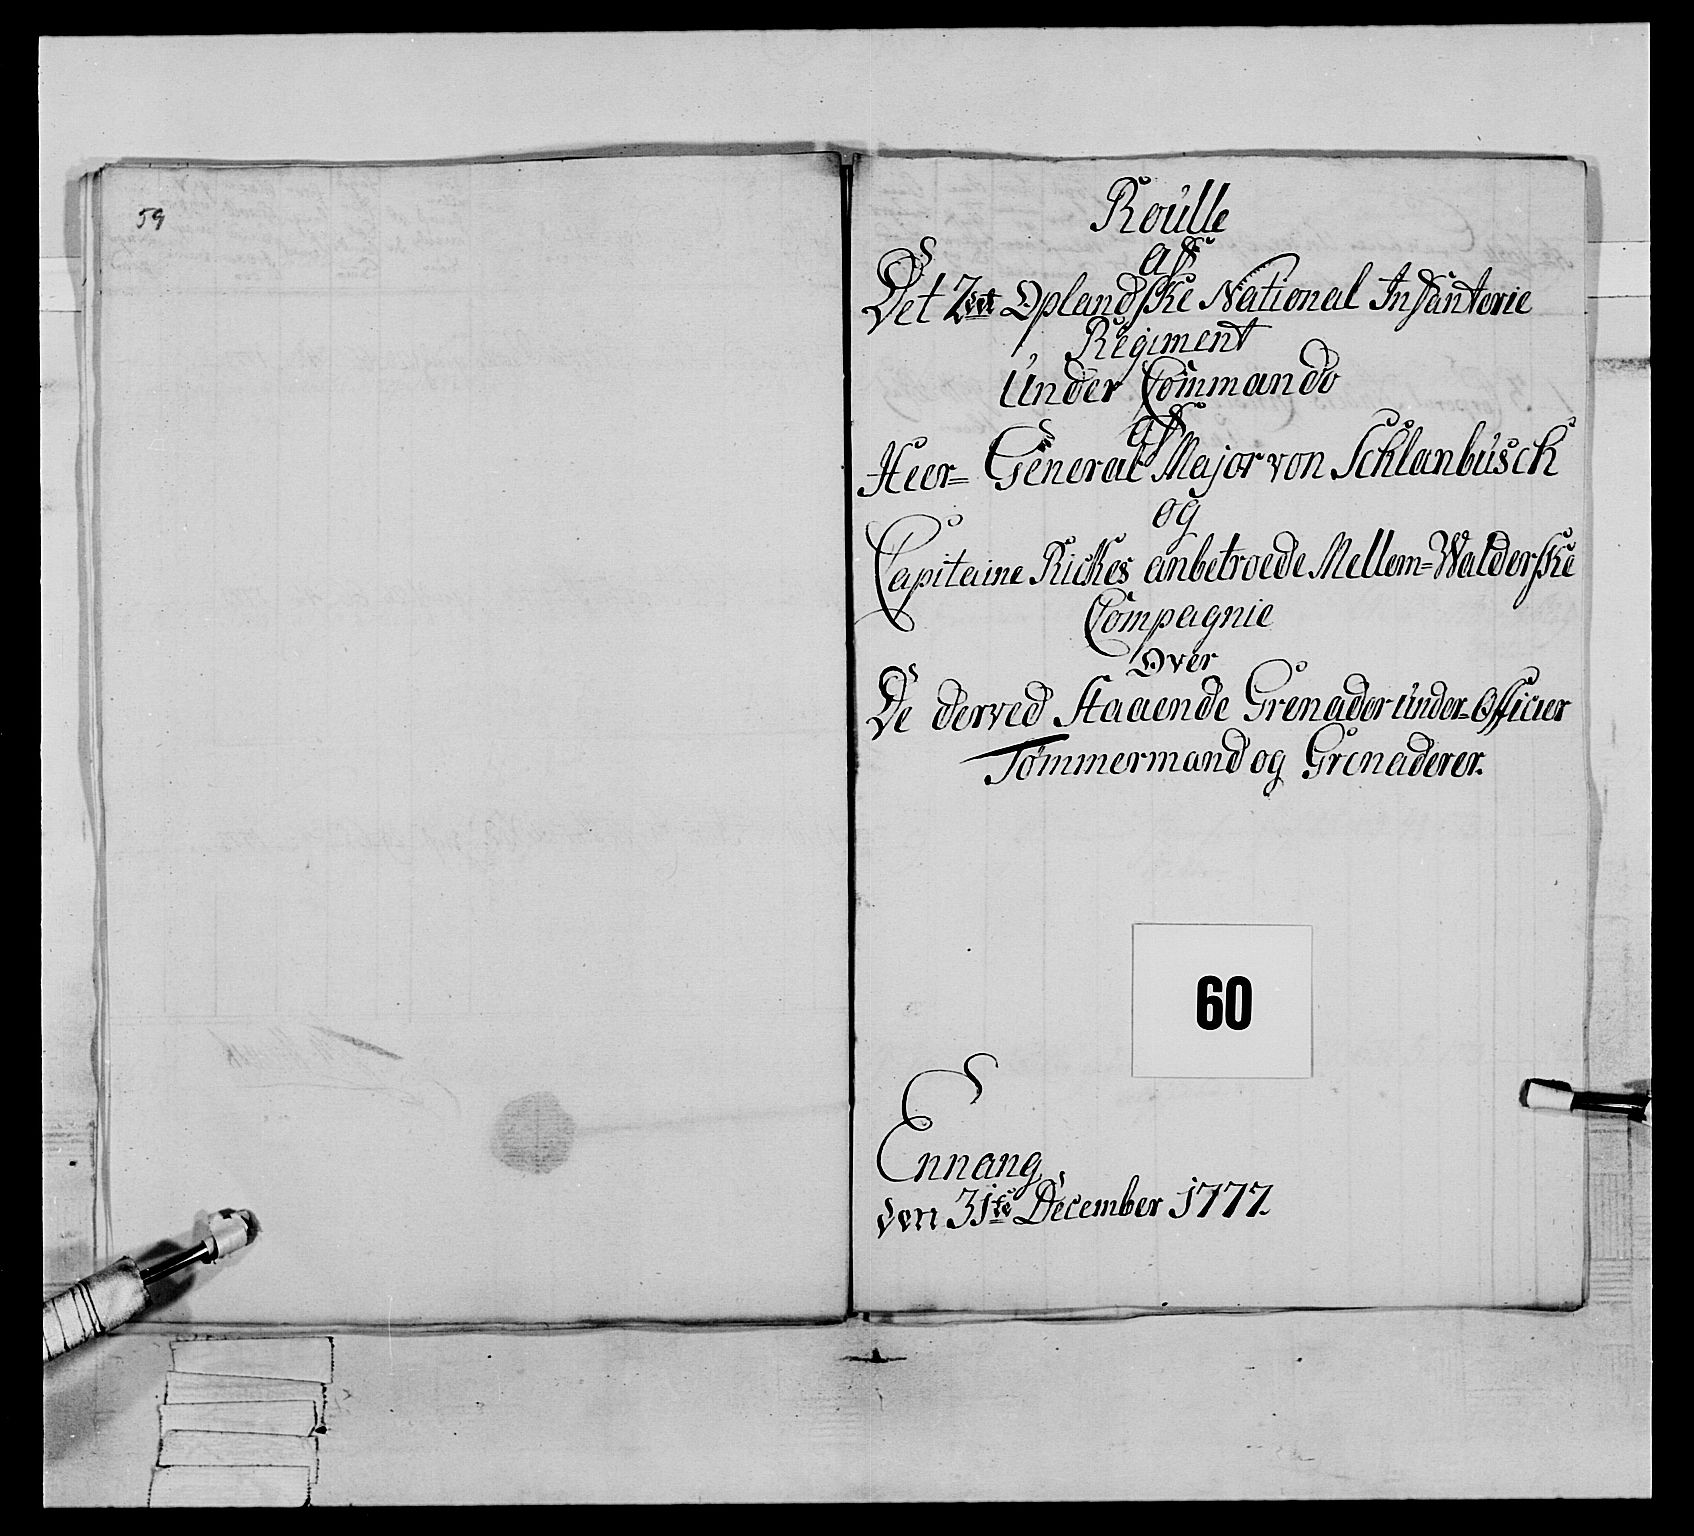 59
Roulle
aff
Det 2det Oplandske National Infanterie
Regiment
Under Commando
aff
Heer= General Major von Schlanbusch
og
Capitaine Rickes anbetroede Mellem=Walderske
Compagnie
Over
De derved staaende Grenader Under=Officier
Tømmermand og Grenaderer.
60
Ennang
den 31te December 1777.